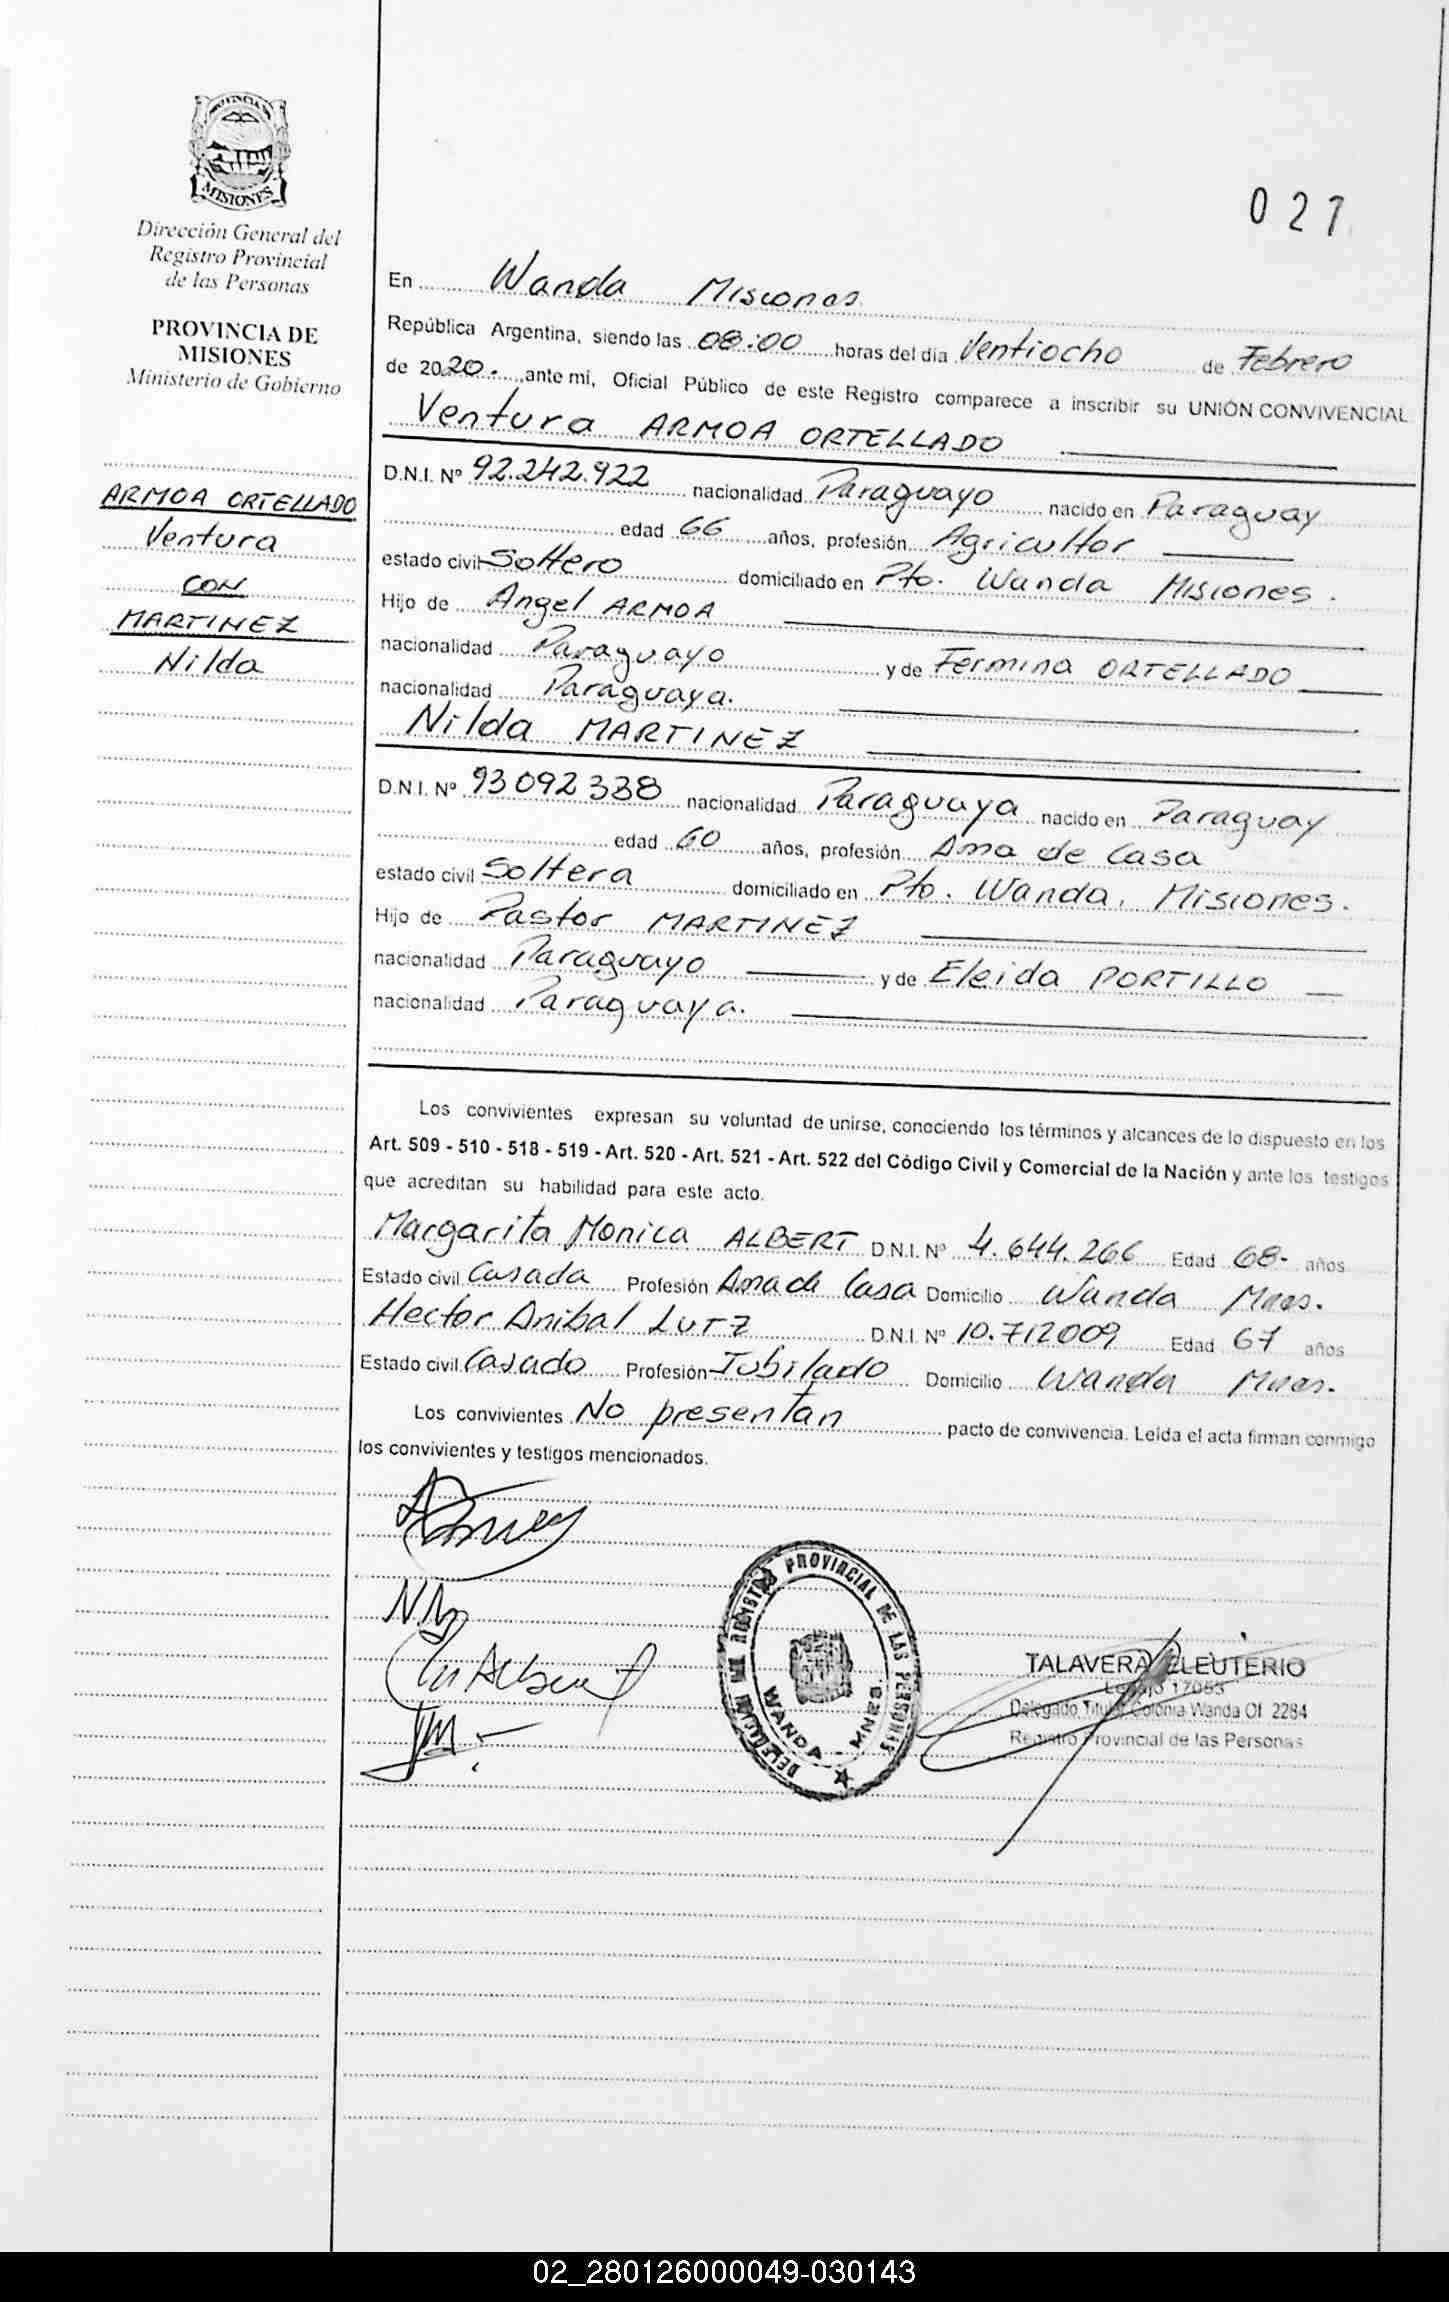 PROVINCIA DE
MISIONES
Dirección General del
Registro Provincial
de las Personas
PROVINCIA DE
MISIONES
Ministerio de Gobierno
ARMOA ORTELLADO
Ventura
CON
MARTINEZ
Nilda
027
En Wanda Misiones
República Argentina, siendo las 08:00 horas del día Ventiocho de Febrero
de 2020. ante mí, Oficial Público de este Registro comparece a inscribir su UNIÓN CONVIVENCIAL
Ventura ARMOA ORTELLADO
D.N.I. Nº 92.242.922 nacionalidad Paraguayo nacido en Paraguay
edad 66 años, profesión Agricultor
estado civil Soltero domiciliado en Pto. Wanda Misiones.
Hijo de Angel ARMOA
nacionalidad Paraguayo y de Fermina ORTELLADO
nacionalidad Paraguaya.
Nilda MARTINEZ
D.N.I. Nº 93 092 338 nacionalidad Paraguaya nacido en Paraguay
edad 60 años, profesión Ama de Casa
estado civil Soltera domiciliado en Pto. Wanda, Misiones.
Hijo de Pastor MARTINEZ
nacionalidad Paraguayo y de Eleida PORTILLO
nacionalidad Paraguaya.
Los convivientes expresan su voluntad de unirse, conociendo los términos y alcances de lo dispuesto en los
Art. 509 - 510 - 518 - 519 - Art. 520 - Art. 521 - Art. 522 del Código Civil y Comercial de la Nación y ante los testigos
que acreditan su habilidad para este acto.
Margarita Monica ALBERT D.N.I. Nº 4.644.266 Edad 68- años
Estado civil Casada Profesión Ama de Casa Domicilio Wanda Mnes.
Hector Anibal LUTZ D.N.I. Nº 10.712009 Edad 67 años
Estado civil Casado Profesión Jubilado Domicilio Wanda Mnes.
Los convivientes No presentan pacto de convivencia. Leída el acta firman conmigo
los convivientes y testigos mencionados.
DELEGACION DE REGISTRO PROVINCIAL DE LAS PERSONAS
WANDA - MNES
TALAVERA ELEUTERIO
Legajo 17053
Delegado Titular Colonia Wanda Of. 2284
Registro Provincial de las Personas
02_280126000049-030143